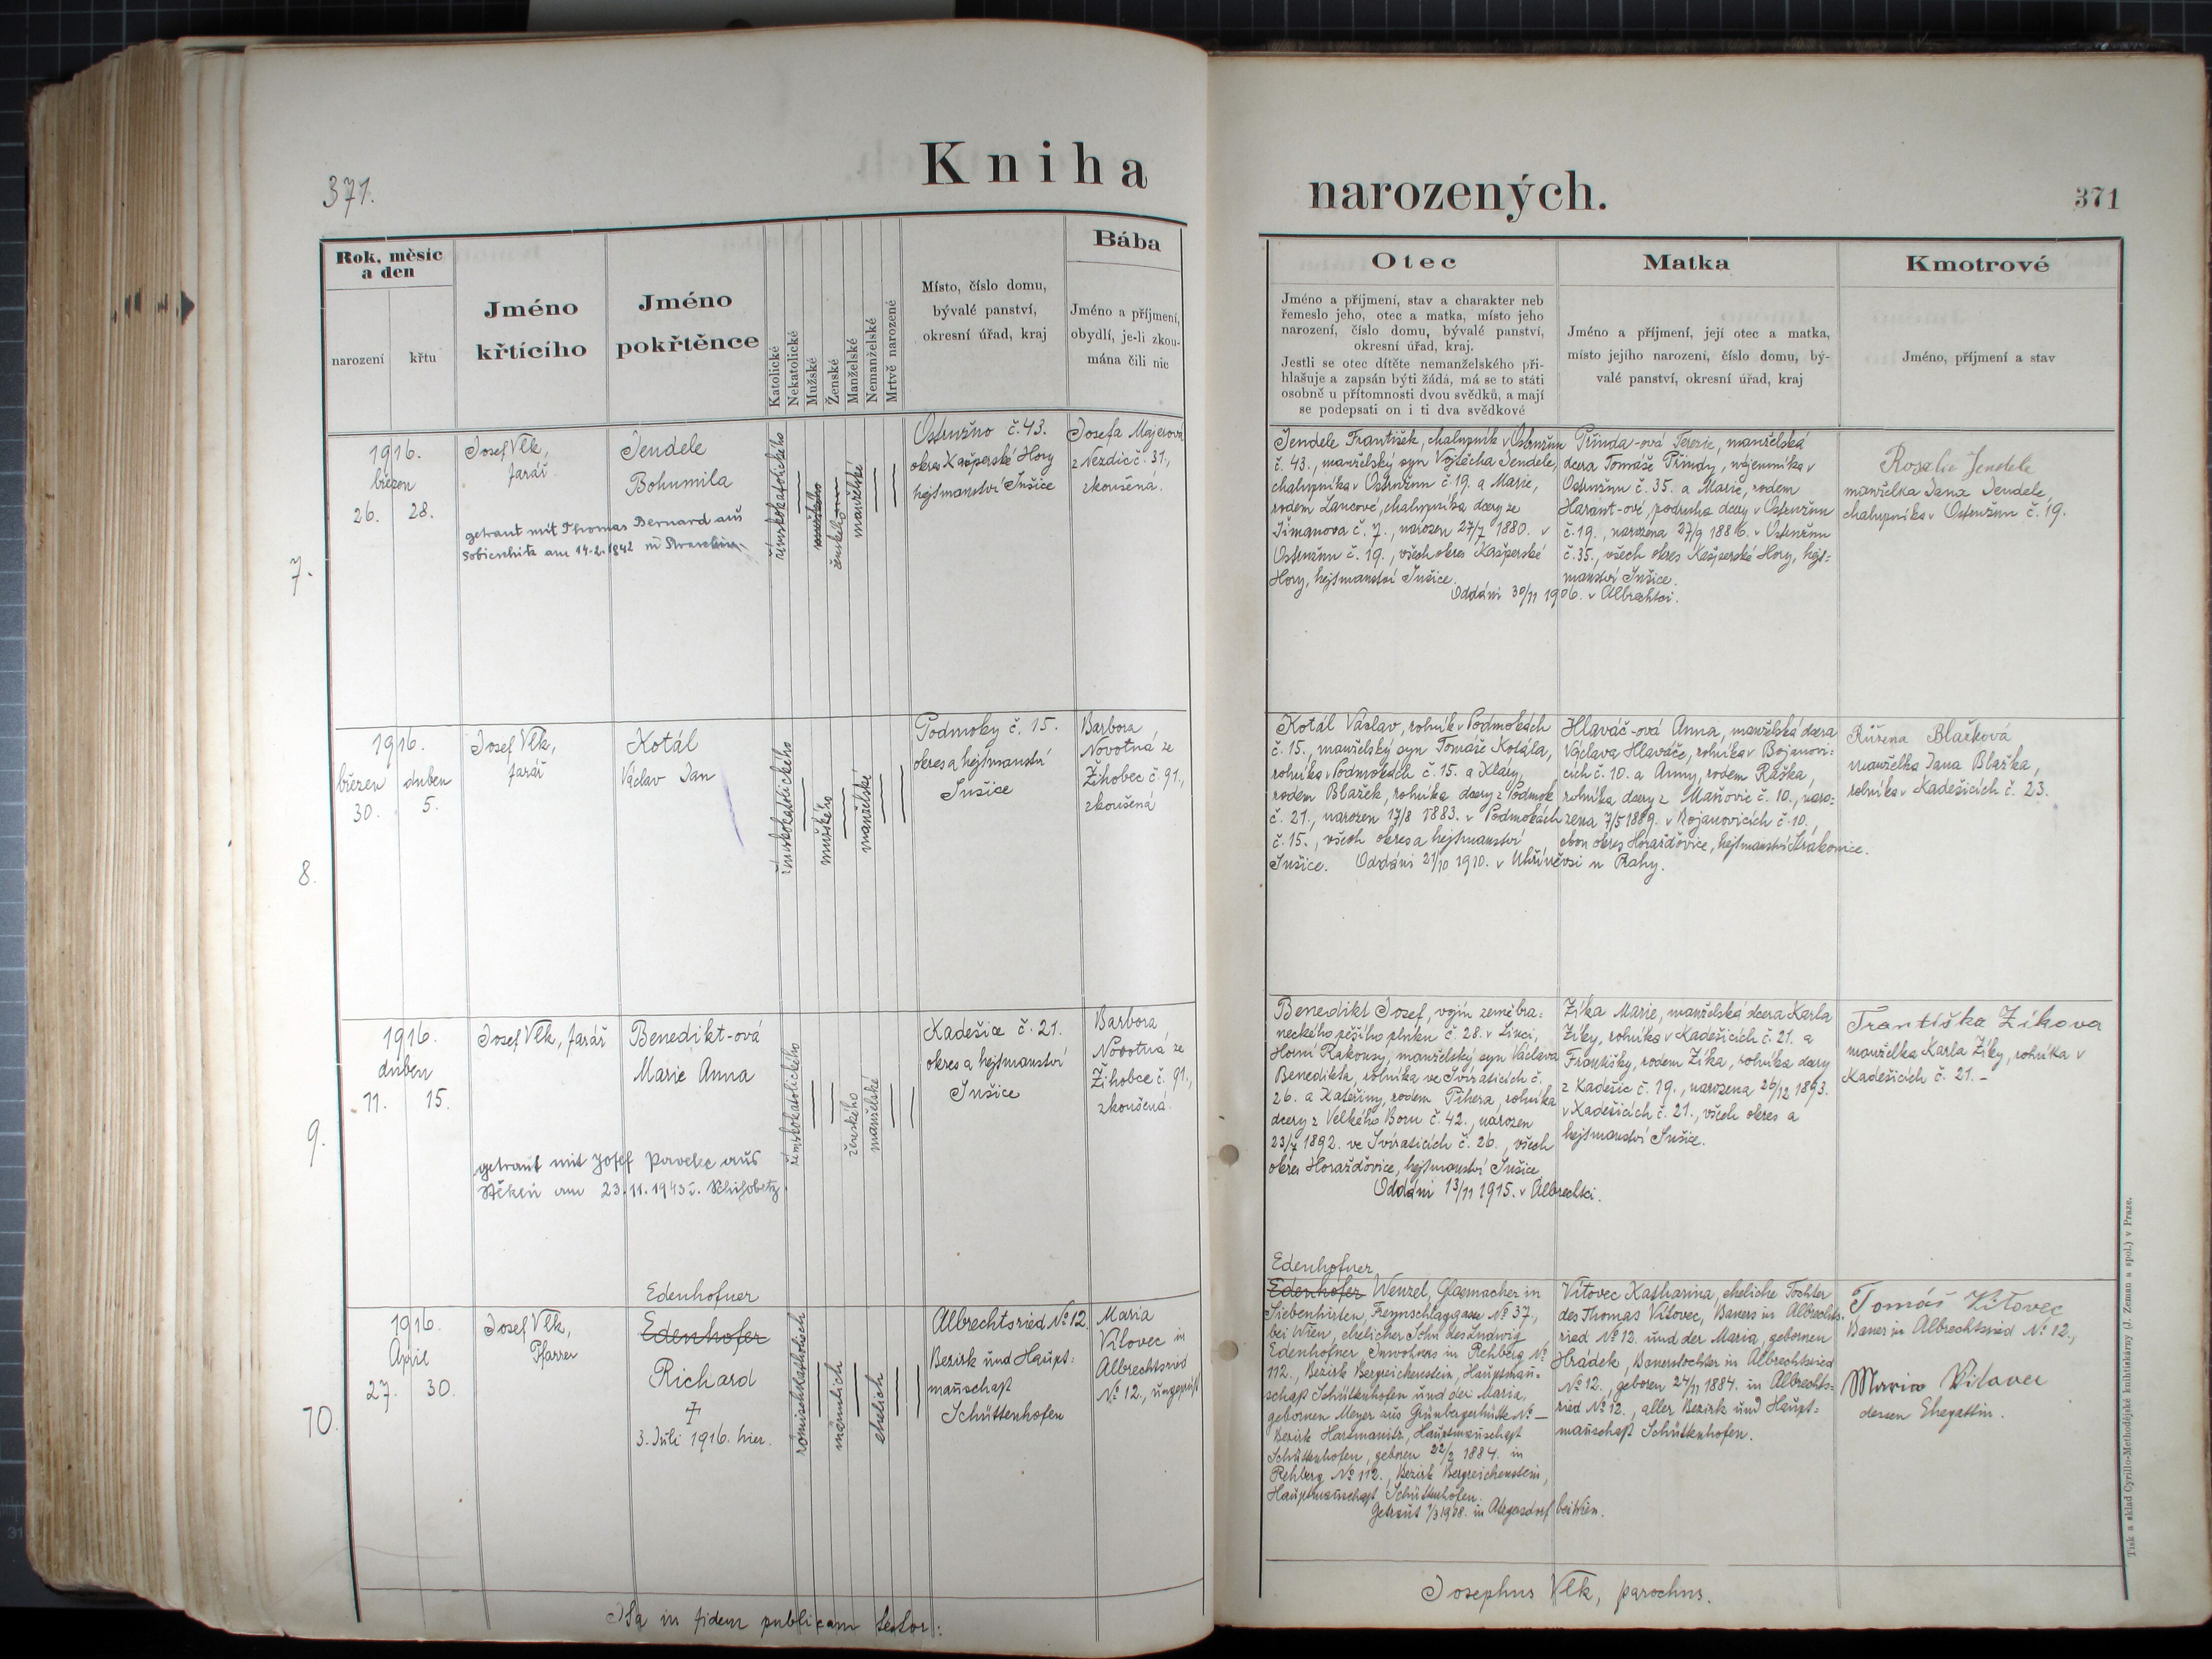 371.
Kniha
narozených.
371
Rok, měsíc
a den
narození
křtu
Jméno
křtícího
Jméno
pokřtěnce
Katolické
Nekatolické
Mužské
Ženské
Manželské
Nemanželské
Mrtvě narozené
Místo, číslo domu,
bývalé panství,
okresní úřad, kraj
Bába
Jméno a příjmení,
obydlí, je-li zkou-
mána čili nic
Otec
Jméno a příjmení, stav a charakter neb
řemeslo jeho, otec a matka, místo jeho
narození, číslo domu, bývalé panství,
okresní úřad, kraj.
Jestli se otec dítěte nemanželského při-
hlašuje a zapsán býti žádá, má se to státi
osobně u přítomnosti dvou svědků, a mají
se podepsati on i ti dva svědkové
Matka
Jméno a příjmení, její otec a matka,
místo jejího narození, číslo domu, bý-
valé panství, okresní úřad, kraj
Kmotrové
Jméno, příjmení a stav
7.
1916.
březen
26. 28.
Josef Vlk,
farář
Jendele
Bohumila
getraut mit Thomas Bernard aus
am 14.2.1942 in
římskokatolického
mužského
ženského
manželské
Ostružno č. 43.
okres Kašperské Hory
hejtmanství Sušice
Josefa Majerová
z Nezdic č. 31,
zkoušená.
Jendele František, chalupník v Ostružnu
č. 43., manželský syn Vojtěcha Jendele,
chalupníka v Ostružnu č. 19. a Marie,
rodem Lancové, chalupníka dcery ze
Šimanova č. 7., narozen 27/7 1880. v
Ostružnu č. 19., všech okres Kašperské
Hory, hejtmanství Sušice.
Oddáni 30/11 1906. v Albrechtci.
Přinda-ová Terezie, manželská
dcera Tomáše Přindy, nájemníka v
Ostružnu č. 35. a Marie, rodem
Harant-ové, podruha dcery v Ostružnu
č. 19., narozena 27/9 1886. v Ostružnu
č. 35., všech okres Kašperské Hory, hejt=
manství Sušice.
Rosalie Jendele
manželka Jana Jendele,
chalupníka v Ostružnu č. 19.
8.
1916.
březen duben
30. 5.
Josef Vlk,
farář
Kotál
Václav Jan
římskokatolického
mužského
manželské
Podmoky č. 15.
okres a hejtmanství
Sušice
Barbora
Novotná ze
Žihobec č. 91.,
zkoušená
Kotál Václav, rolník v Podmokách
č. 15., manželský syn Tomáše Kotála,
rolníka v Podmokách č. 15. a Kláry,
rodem Blažek, rolníka dcery z Podmok
č. 21., narozen 17/8 1883. v Podmokách
č. 15., všech okres a hejtmanství
Sušice. Oddáni 21/10 1910. v Uhříněvsi u Prahy.
Hlaváč-ová Anna, manželská dcera
Václava Hlaváče, rolníka v Bojanovi=
cích č. 10. a Anny, rodem Raška,
rolníka dcery z Maňovic č. 10., naro=
zena 7/5 1889. v Bojanovicích č. 10.,
obou okres Horažďovice, hejtmanství Strakonice.
Růžena Blažková
manželka Jana Blažka,
rolníka v Kadešicích č. 23.
9.
1916.
duben
11. 15.
Josef Vlk, farář
Benedikt-ová
Marie Anna
getraut mit Josef aus
am 23.11.1943 i.
římskokatolického
ženského
manželské
Kadešice č. 21.
okres a hejtmanství
Sušice
Barbora
Novotná ze
Žihobce č. 91.,
zkoušená.
Benedikt Josef, vojín zeměbra=
neckého pěšího pluku č. 28. v Linci,
Horní Rakousy, manželský syn Václava
Benedikta, rolníka ve Svíraticích č.
26. a Kateřiny, rodem Pihera, rolníka
dcery z Velkého Boru č. 42., narozen
23/7 1892. ve Svíraticích č. 26., všech
okres Horažďovice, hejtmanství Sušice.
Oddáni 13/11 1915. v Albrechtci.
Zíka Marie, manželská dcera Karla
Zíky, rolníka v Kadešicích č. 21. a
Františky, rodem Zíka, rolníka dcery
z Kadešic č. 19., narozena 26/12 1893.
v Kadešicích č. 21., všech okres a
hejtmanství Sušice.
Františka Zíkova
manželka Karla Zíky, rolníka v
Kadešicích č. 21. -
10.
1916.
April
27. 30.
Josef Vlk,
Pfarrer
Edenhofner
Edenhofer
Richard
†
3. Juli 1916. hier.
römischkatholisch
männlich
ehelich
Albrechtsried № 12.
Bezirk und Haupt=
manschaft
Schüttenhofen
Maria
Vítovec in
Albrechtsried
№ 12., ungeprüft
Edenhofner
Edenhofer Wenzel, Glasmacher in
Siebenhirten, № 37,
bei Wien, ehelicher Sohn des Ludwig
Edenhofner Inwohners in Rehberg №
112., Bezirk Bergreichenstein, Hauptman-
schaft Schüttenhofen und der Maria,
gebornen Meyer aus Grünbergerhütte № —
Bezirk Hartmanitz, Hauptmanschaft
Schüttenhofen, geboren 22/2 1884. in
Rehberg № 112., Bezirk Bergreichenstein,
Hauptmanschaft Schüttenhofen.
Getraut 1/3 1908. in Atzgersdorf bei Wien.
Vítovec Katharina, eheliche Tochter
des Thomas Vítovec, Bauers in Albrechts-
ried № 12. und der Maria, gebornen
Hrádek, Bauerstochter in Albrechtsried
№ 12., geboren 24/11 1884. in Albrechts=
ried № 12., aller Bezirk und Haupt=
manschaft Schüttenhofen.
Tomáš Vítovec
Bauer in Albrechtsried № 12.,
Maria Vitovec
dessen Ehegattin.
Ita in fidem publicam testor:
Josephus Vlk, parochus.
Tisk a sklad Cyrillo-Methodějské knihtiskárny (J. Zeman a spol.) v Praze.